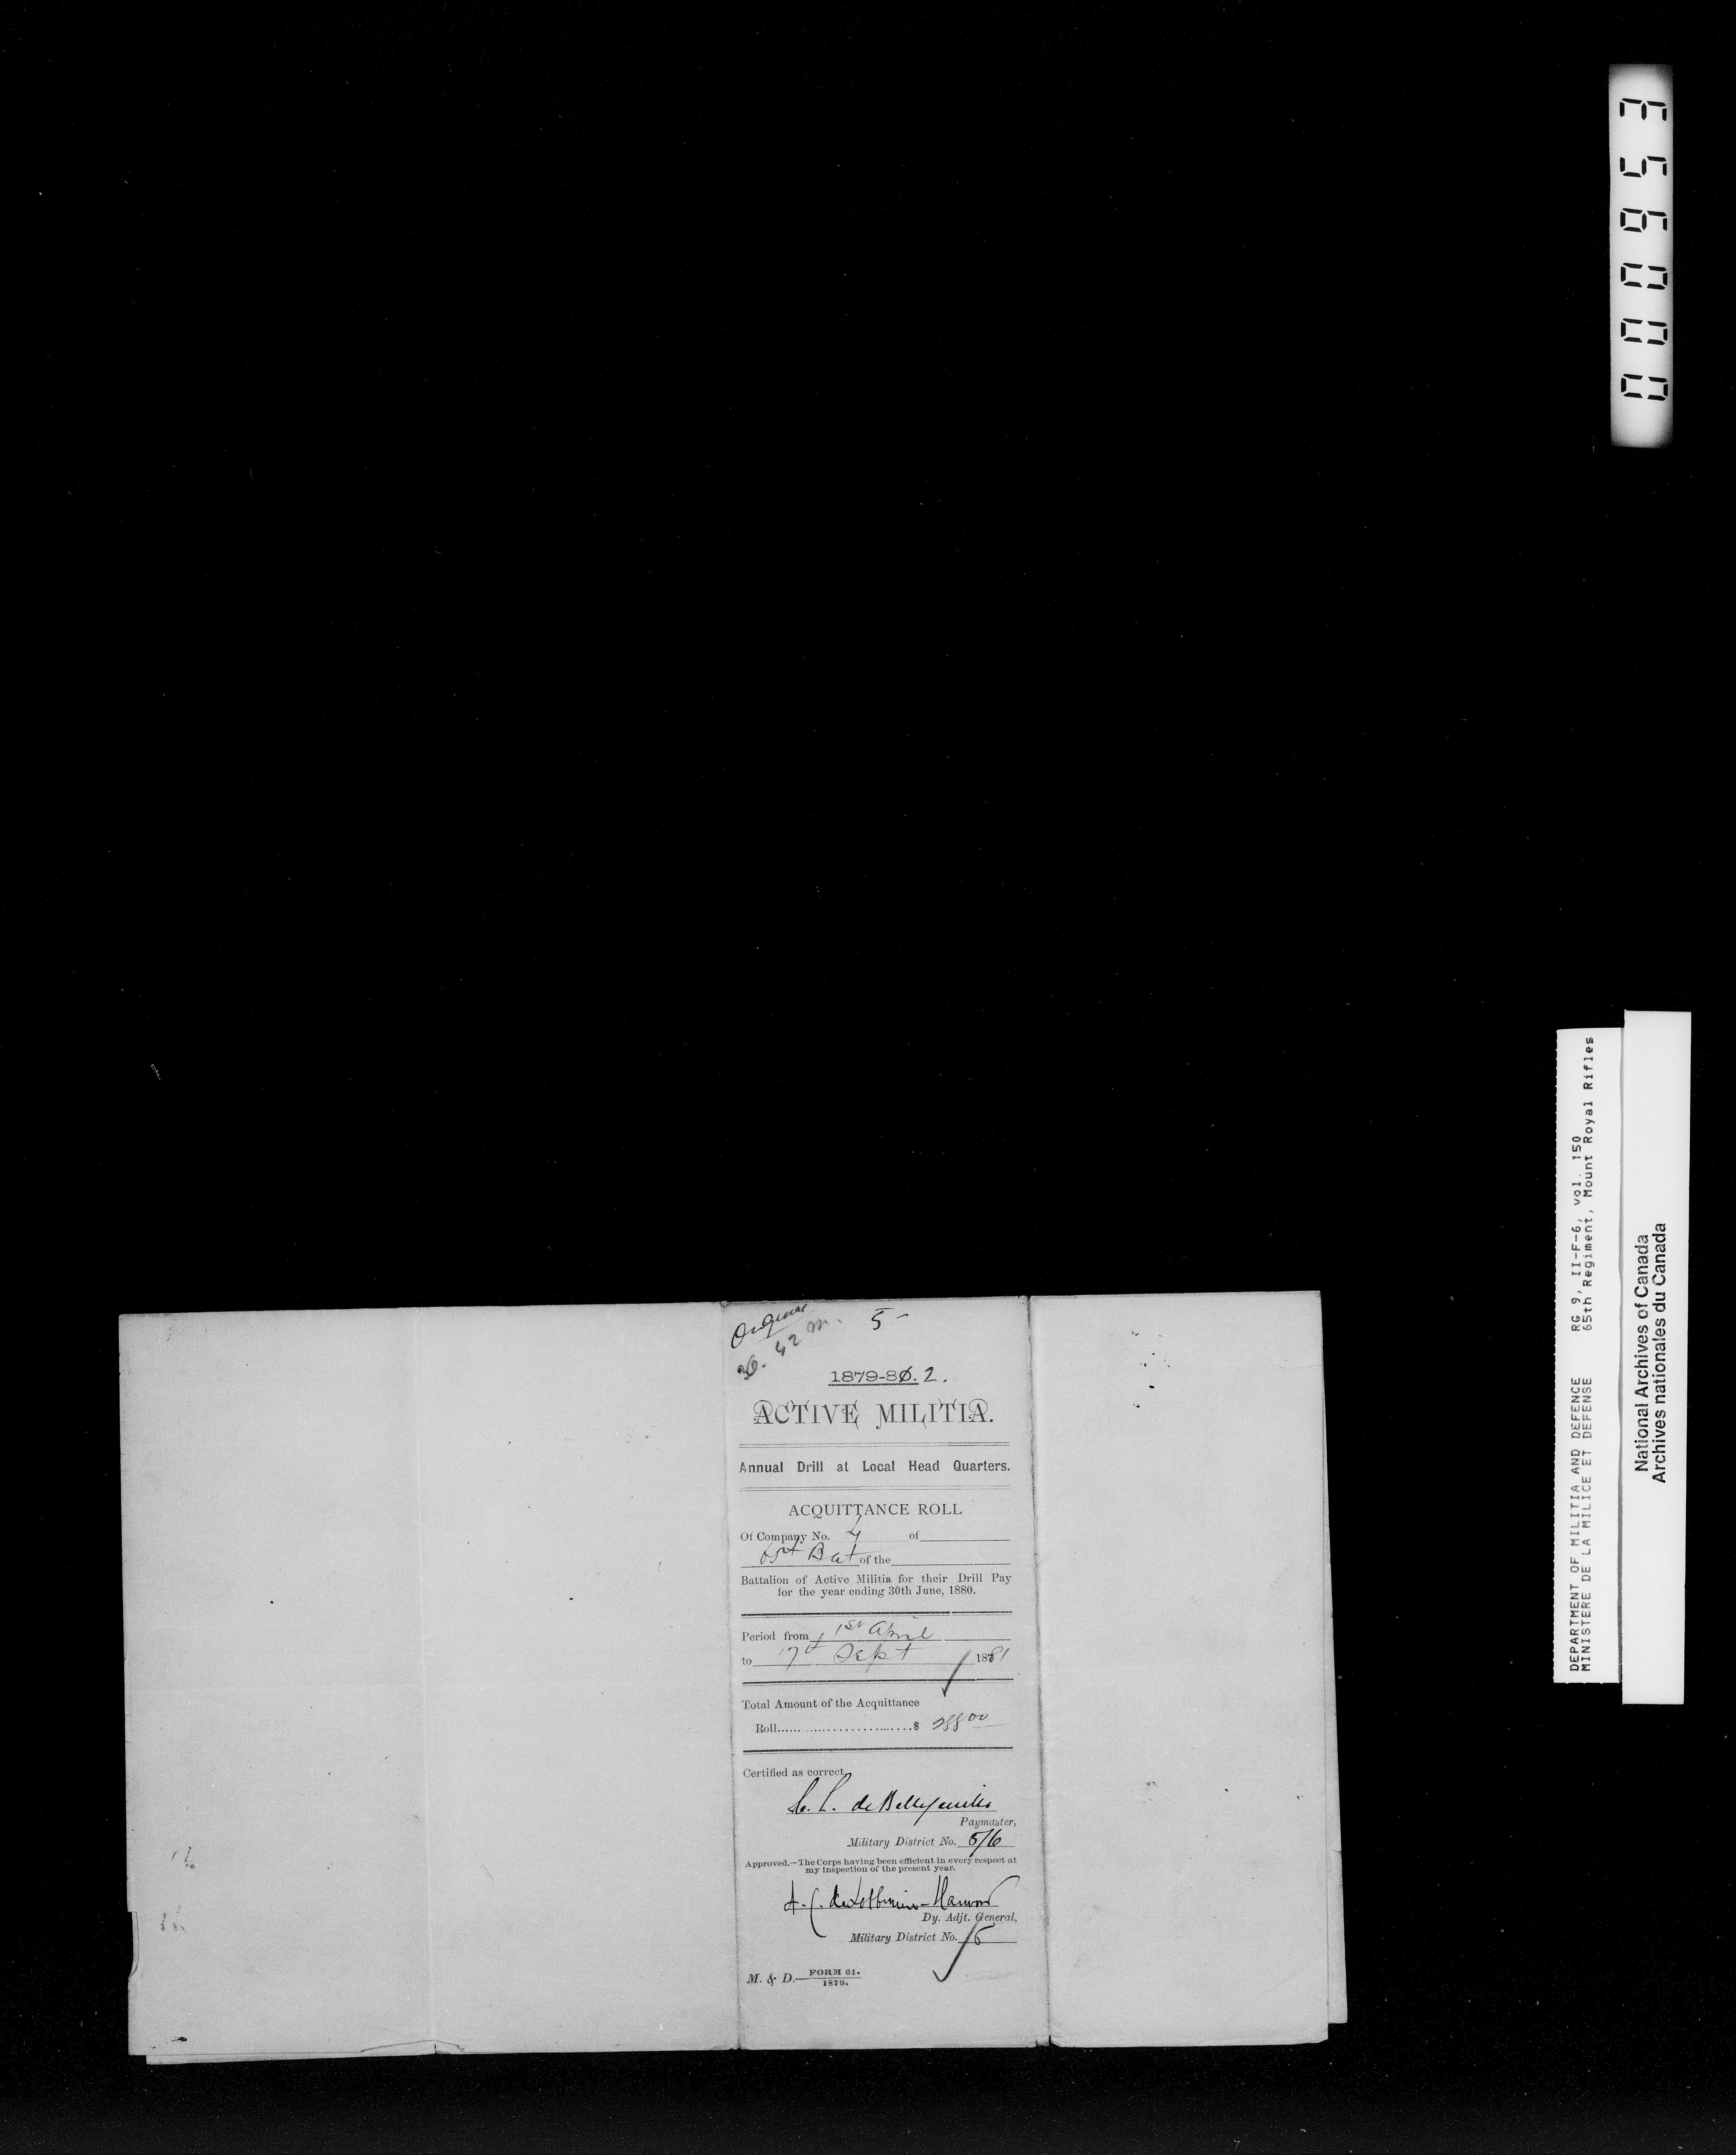 Original
36. 42 m. 5-
1879-80. 2.
ACTIVE MILITIA.
Annual Drill at Local Head Quarters.
ACQUITTANCE ROLL
Of Company No. of
65th Bat of the
Battalion of Active Militia for their Drill Pay
for the year ending 30th June, 1880.
Period from 1st April
to 17th Sept 1881
Total Amount of the Acquittance
Roll....................$ 288 00
Certified as correct,
de Bellefeuille
Paymaster,
Military District No. 5/6
Approved.—The Corps having been efficient in every respect at
my inspection of the present year.
de Lotbinière-Harwood
Dy. Adjt. General,
Military District No. 6
M. & D.—FORM 61.
1879.
000653
DEPARTMENT OF MILITIA AND DEFENCE RG 9, II-F-6, vol. 150
MINISTERE DE LA MILICE ET DEFENSE 65th Regiment, Mount Royal Rifles
National Archives of Canada
Archives nationales du Canada